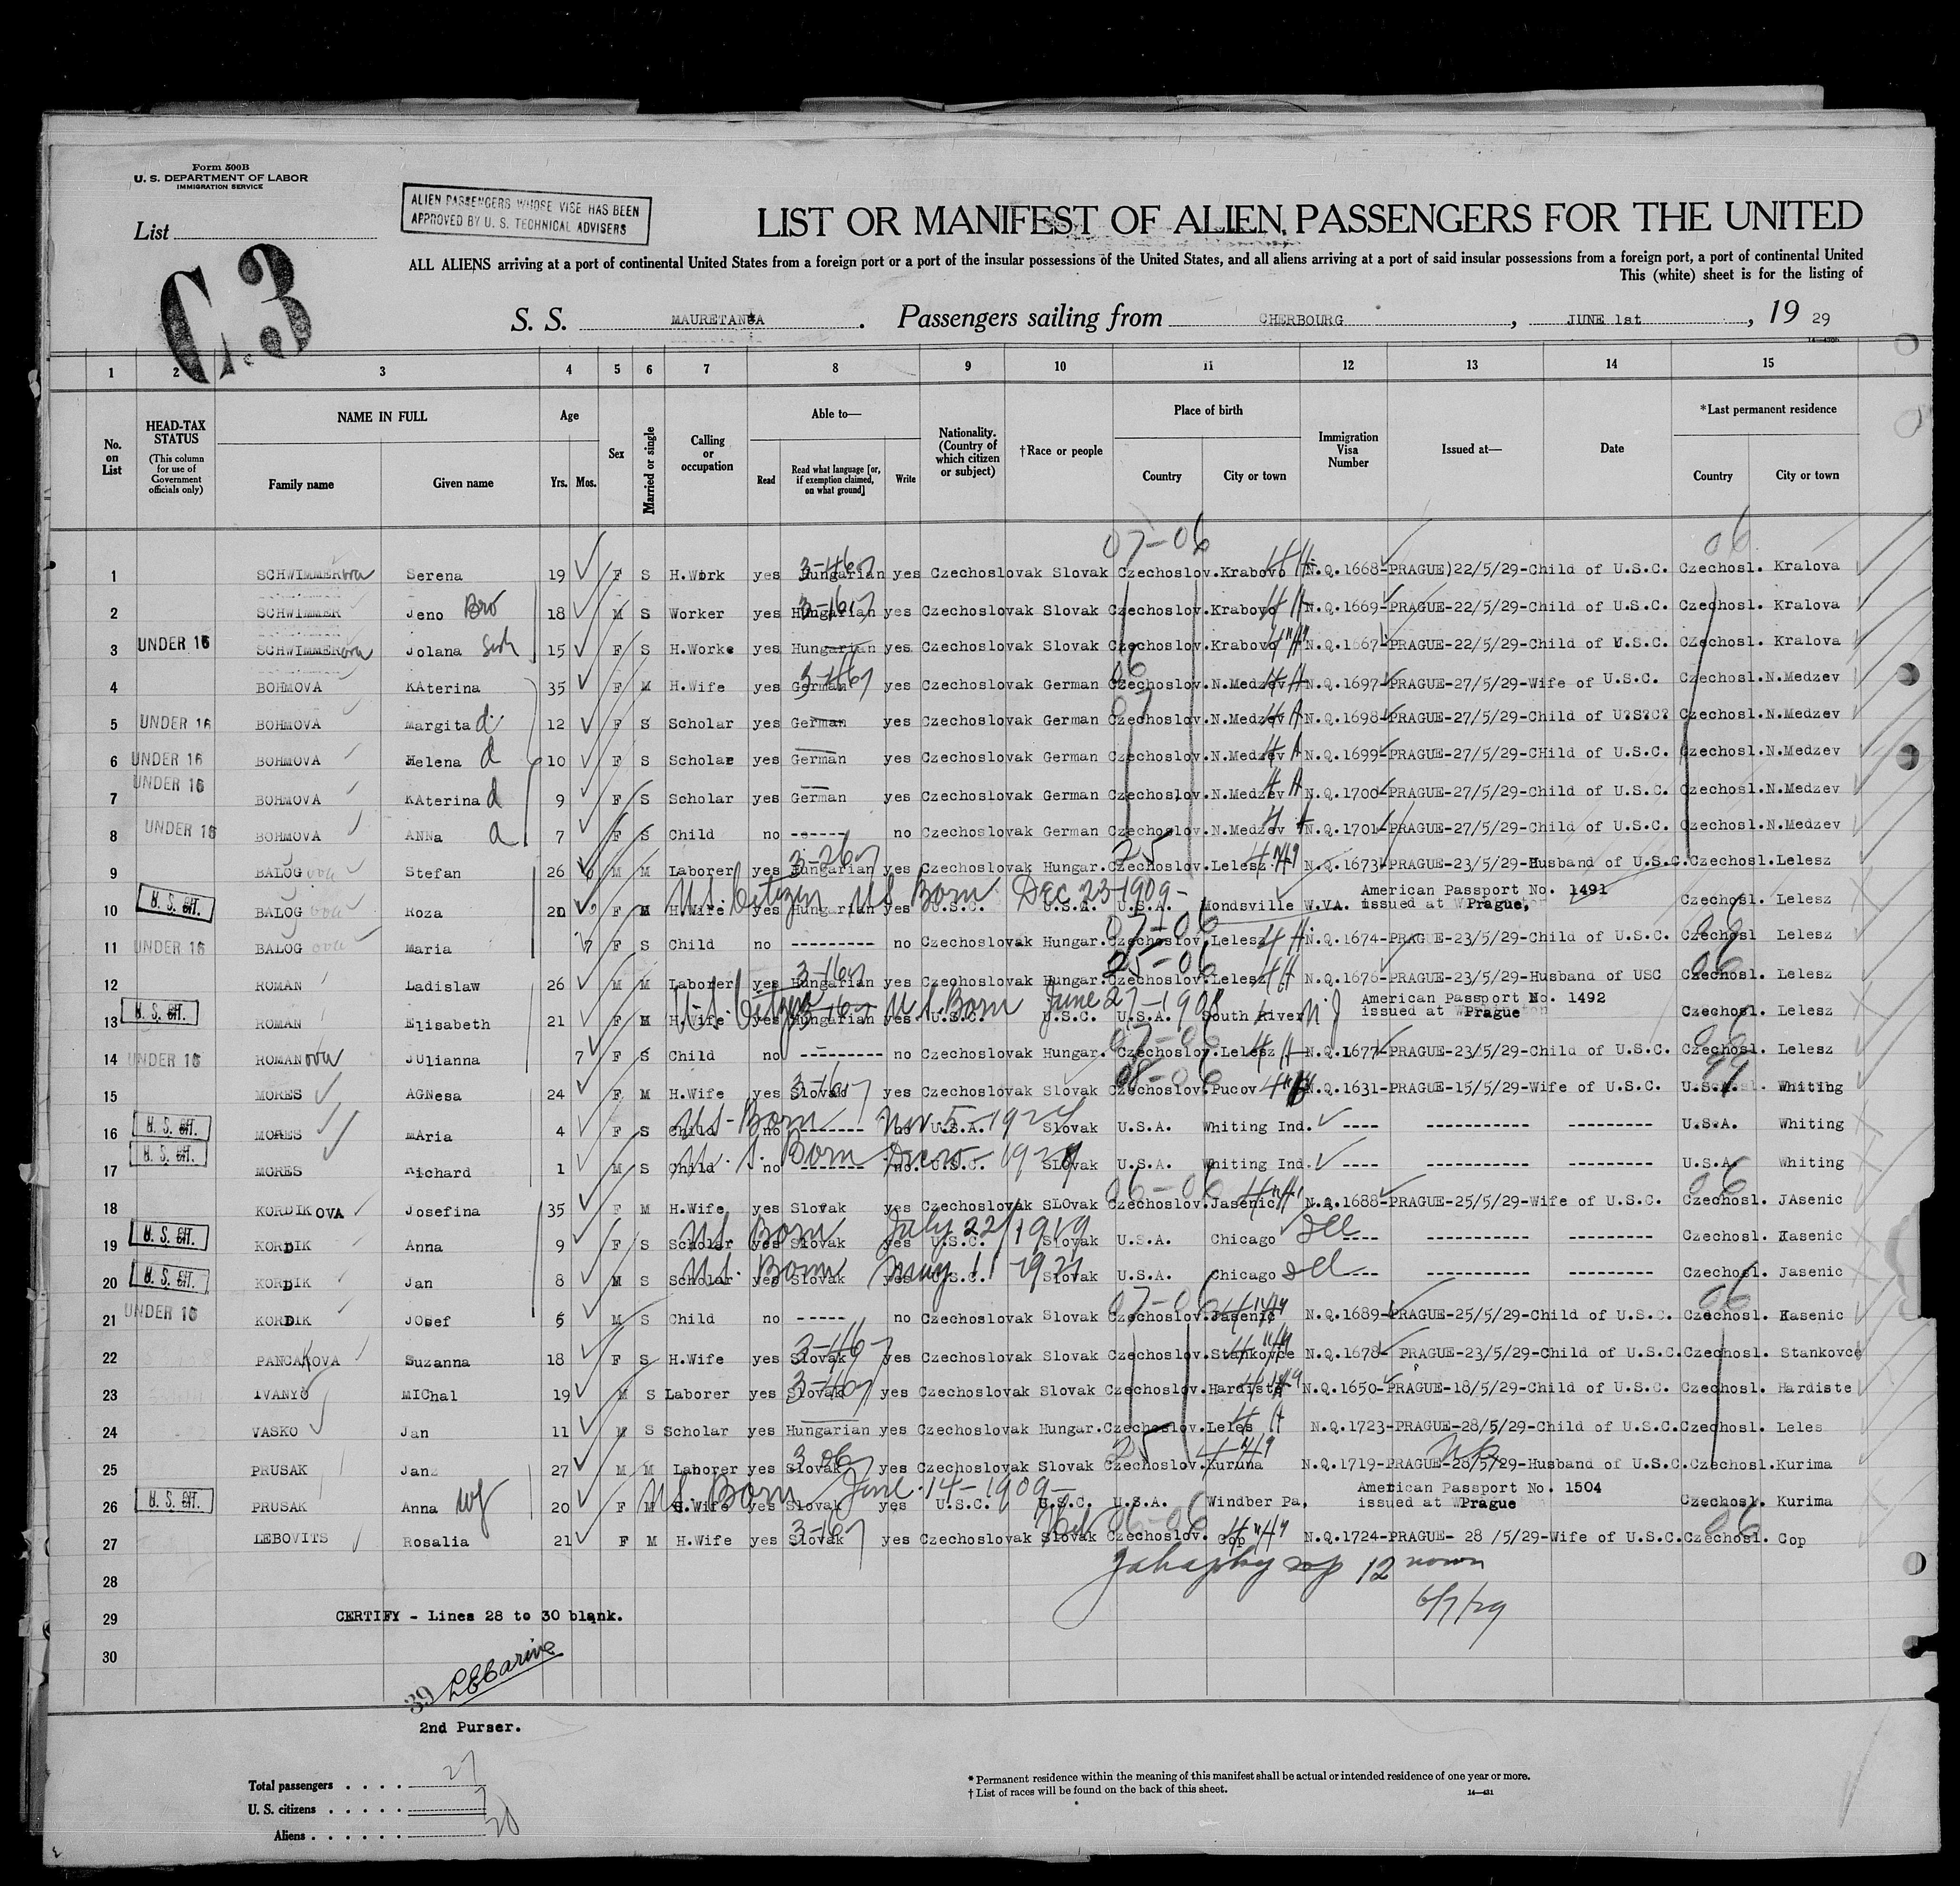 Form 500B
U. S. DEPARTMENT OF LABOR
IMMIGRATION SERVICE
List
ALIEN PASSENGERS WHOSE VISE HAS BEEN
APPROVED BY U. S. TECHNICAL ADVISERS
C.3
LIST OR MANIFEST OF ALIEN PASSENGERS FOR THE UNITED
ALL ALIENS arriving at a port of continental United States from a foreign port or a port of the insular possessions of the United States, and all aliens arriving at a port of said insular possessions from a foreign port, a port of continental United
This (white) sheet is for the listing of
S. S. MAURETANIA. Passengers sailing from CHERBOURG, JUNE 1st, 19 29
1 2 3 4 5 6 7 8 9 10 11 12 13 14 15
No. on List
HEAD-TAX STATUS (This column for use of Government officials only)
NAME IN FULL Family name Given name
Age Yrs. Mos.
Sex
Married or single
Calling or occupation
Able to— Read Read what language [or, if exemption claimed, on what ground] Write
Nationality. (Country of which citizen or subject)
†Race or people
Place of birth Country City or town
Immigration Visa Number
Issued at—
Date
*Last permanent residence Country City or town
07-06 06
1 SCHWIMMERova Serena 19 F S H.Work yes Hungarian yes Czechoslovak Slovak Czechoslov.Krabovo N.Q.1668-PRAGUE)22/5/29-Child of U.S.C. Czechosl. Kralova
2 SCHWIMMER Jeno Bro 18 M S Worker yes Hungarian yes Czechoslovak Slovak Czechoslov.Krabovo N.Q.1669-PRAGUE-22/5/29-Child of U.S.C. Czechosl. Kralova
3 UNDER 16 SCHWIMMERova Jolana 15 F S H.Worke yes Hungarian yes Czechoslovak Slovak Czechoslov.Krabovo N.Q.1667-PRAGUE-22/5/29-Child of U.S.C. Czechosl. Kralova
4 BOHMOVA KAterina 35 F M H.Wife yes German yes Czechoslovak German Czechoslov.N.Medzev N.Q.1697-PRAGUE-27/5/29-Wife of U.S.C. Czechosl.N.Medzev
5 UNDER 16 BOHMOVA Margita d 12 F S Scholar yes German yes Czechoslovak German Czechoslov.N.Medzev N.Q.1698-PRAGUE-27/5/29-Child of U?S?C? Czechosl.N.Medzev
6 UNDER 16 BOHMOVA Helena d 10 F S Scholar yes German yes Czechoslovak German Czechoslov.N.Medzev N.Q.1699-PRAGUE-27/5/29-CHild of U.S.C. Czechosl.N.Medzev
7 UNDER 16 BOHMOVA KAterina d 9 F S Scholar yes German yes Czechoslovak German Czechoslov.N.Medzev N.Q.1700-PRAGUE-27/5/29-Child of U.S.C. Czechosl.N.Medzev
8 UNDER 16 BOHMOVA ANNa d 7 F S Child no ------ no Czechoslovak German Czechoslov.N.Medzev N.Q.1701-PRAGUE-27/5/29-Child of U.S.C. Czechosl.N.Medzev
9 BALOG Stefan 26 M M Laborer yes Hungarian yes Czechoslovak Hungar.Czechoslov.Lelesz N.Q.1673-PRAGUE-23/5/29-Husband of U.S.C.Czechosl.Lelesz
U.S. Citizen US Born Dec 23-1909- American Passport No. 1491
10 U. S. CIT. BALOG Roza 20 F M H.Wife yes Hungarian yes U.S.C. U.S.A. U.S.A. Mondsville W.VA. issued at Prague, Czechosl. Lelesz
11 UNDER 16 BALOG ova Maria 7 F S Child no --------- no Czechoslovak Hungar.Czechoslov.Lelesz N.Q.1674-PRAGUE-23/5/29-Child of U.S.C. Czechosl Lelesz
12 ROMAN Ladislaw 26 M M Laborer yes Hungarian yes Czechoslovak Hungar.Czechoslov.Lelesz N.Q.1676-PRAGUE-23/5/29-Husband of USC Czechosl. Lelesz
U.S. Citizen U.S. Born June 27-1908 American Passport No. 1492
13 U. S. CIT. ROMAN Elisabeth 21 F M H.Wife yes Hungarian yes U.S.C. U.S.C. U.S.A. South River NJ issued at Prague Czechosl. Lelesz
14 UNDER 16 ROMANova JUlianna 7 F S Child no --------- no Czechoslovak Hungar. Czechoslov.Lelesz N.Q.1677-PRAGUE-23/5/29-Child of U.S.C. Czechosl. Lelesz
15 MORES AGNesa 24 F M H.Wife yes Slovak yes Czechoslovak Slovak Czechoslov.Pucov N.Q.1631-PRAGUE-15/5/29-Wife of U.S.C. U.S.A. Whiting
US-Born Nov 5-1924
16 U. S. CIT. MORES mAria 4 F S Child no ------- no U.S.A. Slovak U.S.A. Whiting Ind. ---- ----------- --------- U.S.A. Whiting
17 U. S. CIT. MORES Richard 1 M S Child no ------- no. U.S.C. SLOvak U.S.A. Whiting Ind. ---- ----------- --------- U.S.A. Whiting
18 KORDIKOVA Josefina 35 F M H.Wife yes Slovak yes Czechoslovak SLOvak Czechoslov.Jasenic N.Q.1688-PRAGUE-25/5/29-Wife of U.S.C. Czechosl. JAsenic
US Born July 22/1919
19 U. S. CIT. KORDIK Anna 9 F S Scholar yes Slovak yes U.S.C. Slovak U.S.A. Chicago Ill ---- ----------- --------- Czechosl. Kasenic
U.S. Born May 11-1921
20 U. S. CIT. KORDIK Jan 8 M S Scholar yes Slovak yes U.S.C. Slovak U.S.A. Chicago Ill ---- ----------- --------- Czechosl. Jasenic
21 UNDER 16 KORDIK JOsef 5 M S Child no ----- no Czechoslovak Slovak Czechoslov.Jasenic N.Q.1689-PRAGUE-25/5/29-Child of U.S.C. Czechosl. Kasenic
22 PANCAKOVA Suzanna 18 F S H.Wife yes Slovak yes Czechoslovak Slovak Czechoslov.Stankovce N.Q.1678- PRAGUE-23/5/29-Child of U.S.C.Czechosl. Stankovce
23 IVANYO MIChal 19 M S Laborer yes Slovak yes Czechoslovak Slovak Czechoslov.Hardiste N.Q.1650-PRAGUE-18/5/29-Child of U.S.C. Czechosl. Hardiste
24 VASKO Jan 11 M S Scholar yes Hungarian yes Czechoslovak Hungar.Czechoslov.Leles N.Q.1723-PRAGUE-28/5/29-Child of U.S.C.Czechosl. Leles
25 PRUSAK Jan 27 M M Laborer yes Slovak yes Czechoslovak Slovak Czechoslov.Kuruna N.Q.1719-PRAGUE-28/5/29-Husband of U.S.C.Czechosl.Kurima
US Born June-14-1909- American Passport No. 1504
26 U. S. CIT. PRUSAK Anna wf 20 F M H.Wife yes Slovak yes U.S.C. U.S.C. U.S.A. Windber Pa, issued at Prague Czechosl. Kurima
27 LEBOVITS Rosalia 21 F M H.Wife yes Slovak yes Czechoslovak Slovak Czechoslov. Cop N.Q.1724-PRAGUE- 28 /5/29-Wife of U.S.C.Czechosl. Cop
28 12 noon
29 CERTIFY - Lines 28 to 30 blank. 6/7/29
30
39
2nd Purser.
Total passengers . . . . 27
U. S. citizens . . . . . 7
Aliens . . . . . . 20
* Permanent residence within the meaning of this manifest shall be actual or intended residence of one year or more.
† List of races will be found on the back of this sheet.
14—431